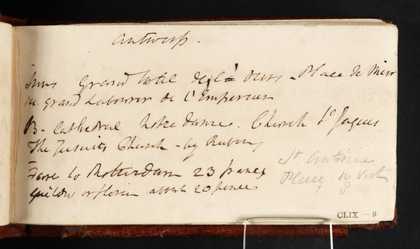 Antwerp.
Inns Grand Hotel de l' Ours - Place de Meir
Le grand Laboureur de l'Empereur
B - Cathedral Notre dame. Church St Jaques
The Jesuits Church - by Rubens
Fare to Rotterdam 23 francs
guilder or florin about 20 pence
St Antoine
Place Vert
CLIX - 8